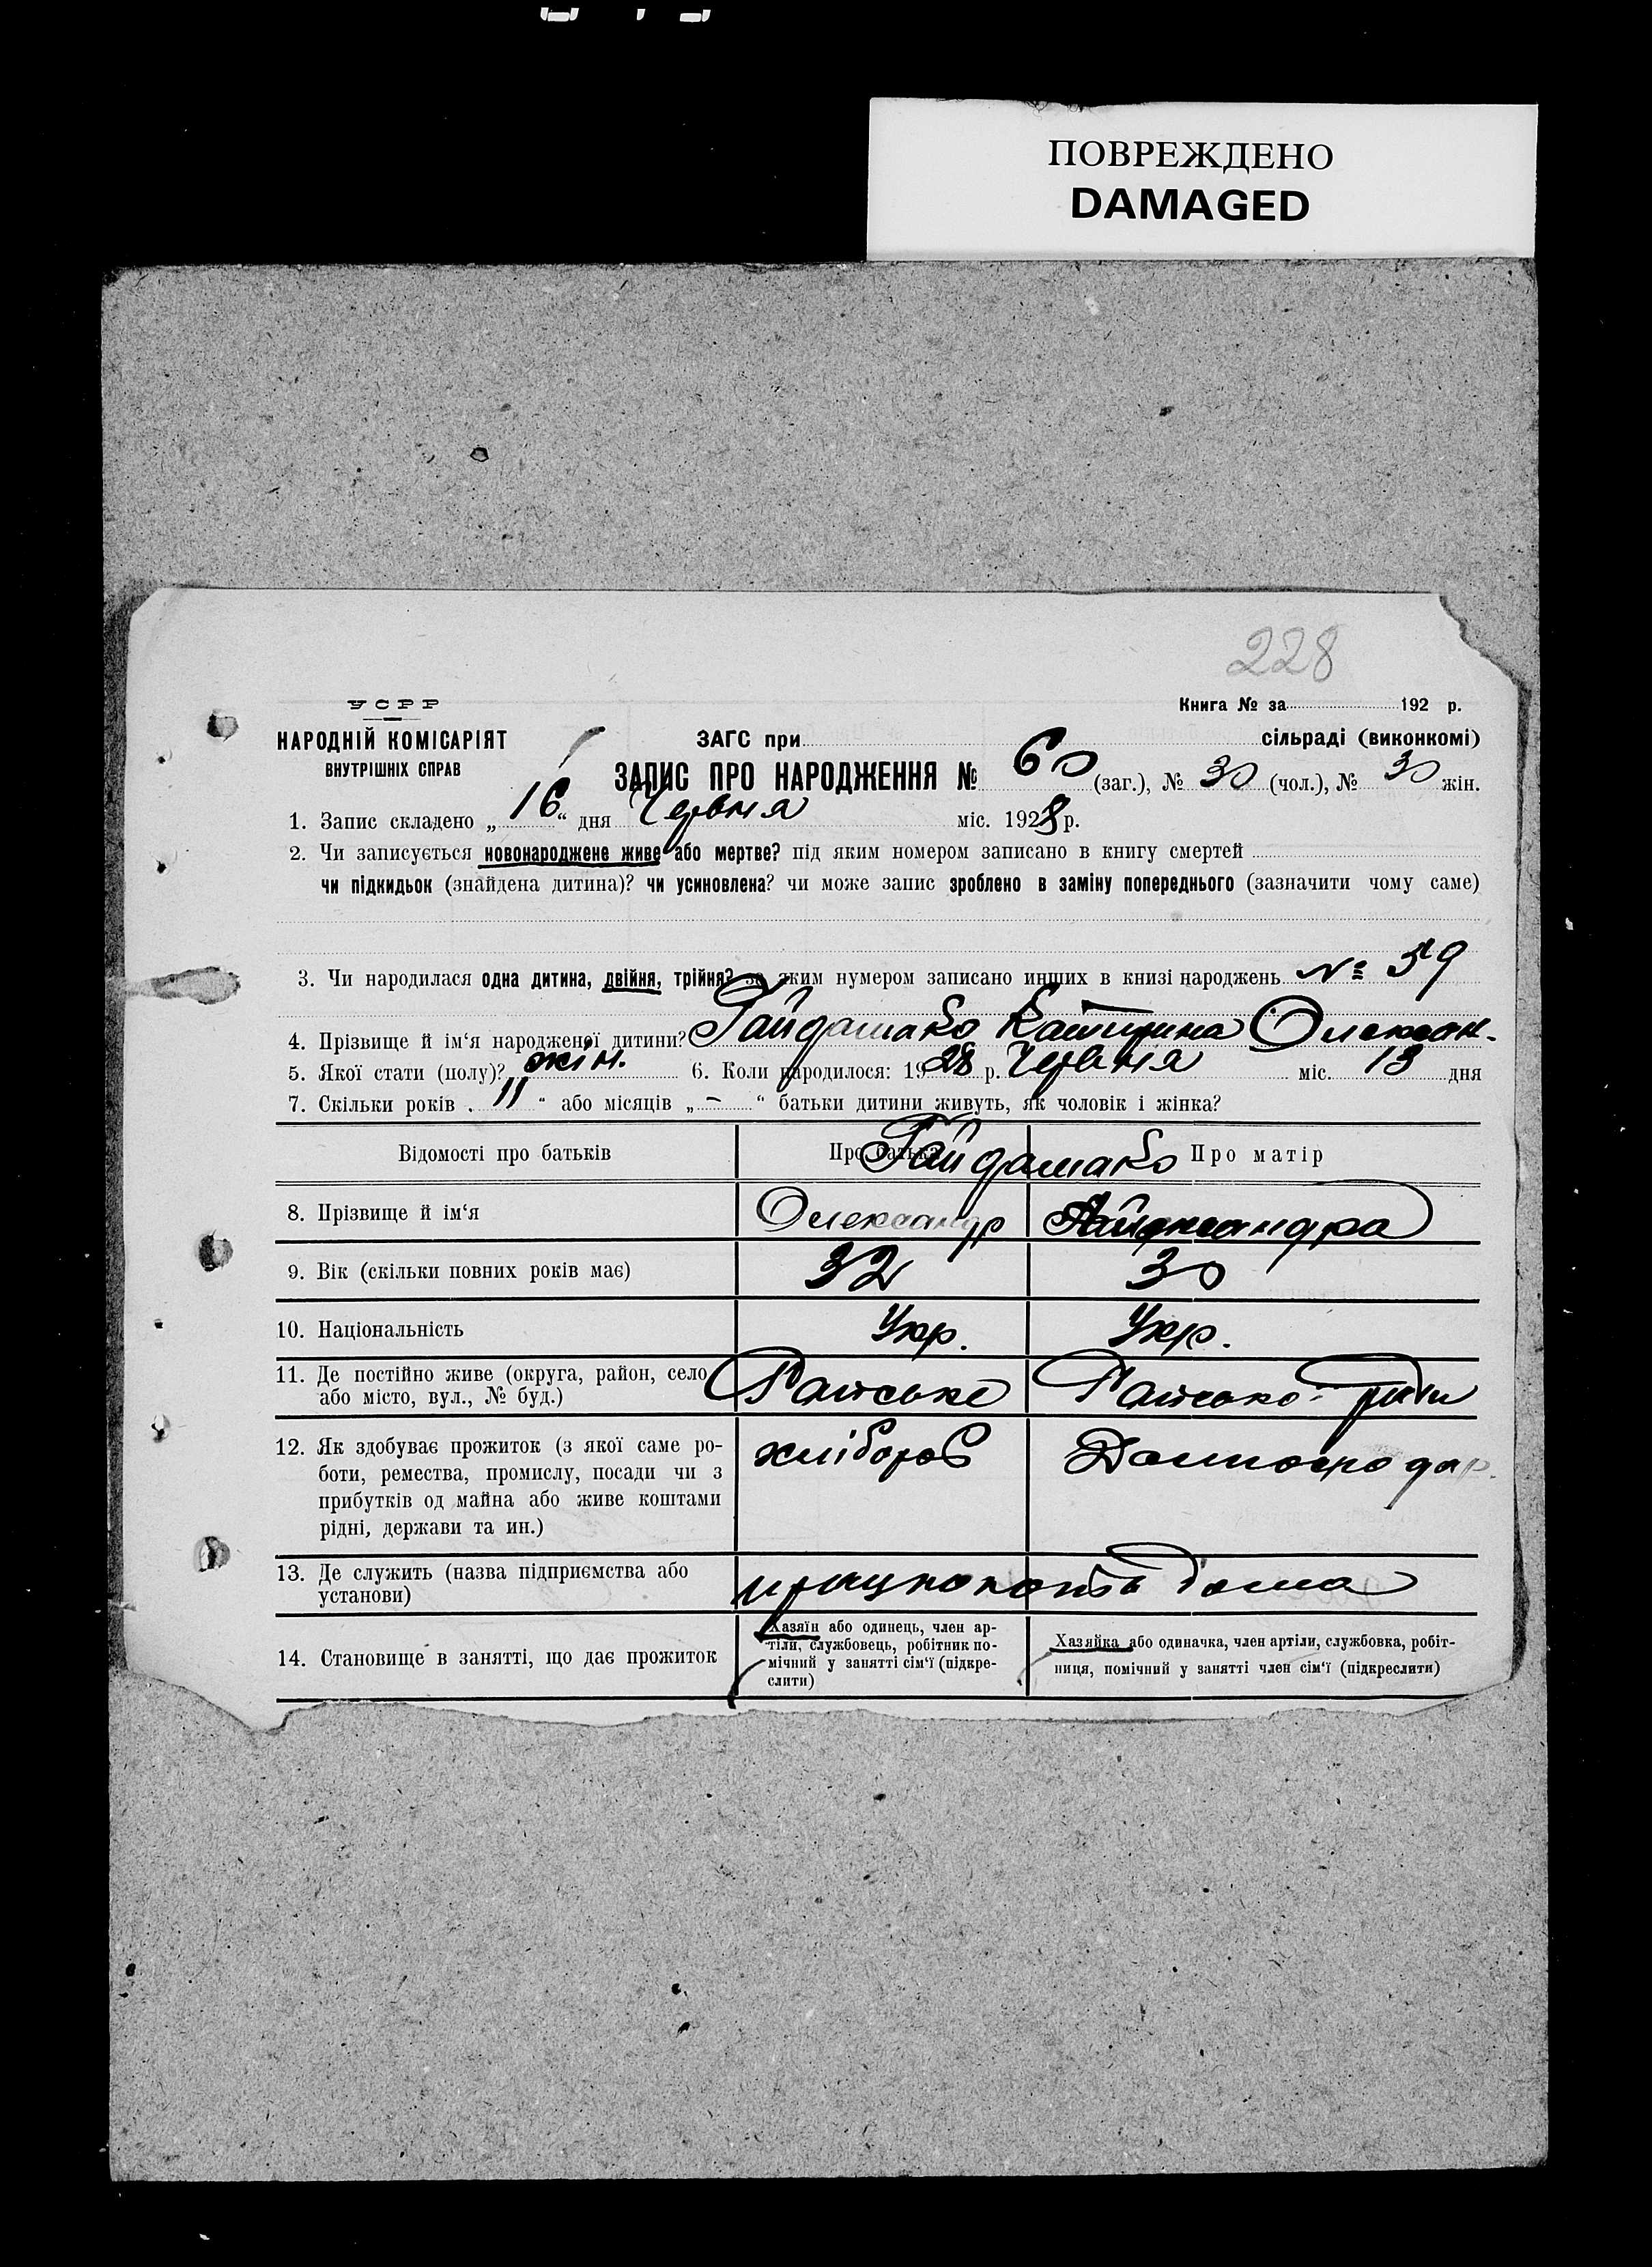 ПОВРЕЖДЕНО
DAMAGED
228
УСРР
Книга № за 192 р.
НАРОДНІЙ КОМІСАРІЯТ
ВНУТРІШНІХ СПРАВ
ЗАГС при сільраді (виконкомі)
ЗАПИС ПРО НАРОДЖЕННЯ № 60 (заг.), № 30 (чол.), № 30 жін.
1. Запис складено „ 16 “ дня Червня міс. 1928 р.
2. Чи записується новонароджене живе або мертве? під яким номером записано в книгу смертей
чи підкидьок (знайдена дитина)? чи усиновлена? чи може запис зроблено в заміну попереднього (зазначити чому саме)
3. Чи народилася одна дитина, двійня, трійня? за яким нумером записано инших в книзі народжень № 59
4. Прізвище й ім‘я народженої дитини? Гайдамако Катирина Олексан.
5. Якої стати (полу)? жін. 6. Коли народилося: 1928 р. Червня міс. 13 дня
7. Скільки років „ 11 “ або місяців „ – “ батьки дитини живуть, як чоловік і жінка?
Відомості про батьків Про батька Гайдамако Про матір
8. Прізвище й ім‘я Олександр
9. Вік (скільки повних років має) 32 30
10. Національність Укр. Укр.
11. Де постійно живе (округа, район, село
або місто, вул., № буд.)
12. Як здобуває прожиток (з якої саме ро-
боти, ремества, промислу, посади чи з
прибутків од майна або живе коштами
рідні, держави та ин.)
хлібороб
Домогосподар.
13. Де служить (назва підприємства або
установи)
працюють дома
14. Становище в занятті, що дає прожиток
Хазяїн або одинець, член ар-
тіли, службовець, робітник по-
мічний у занятті сім‘ї (підкре-
слити)
Хазяйка або одиначка, член артіли, службовка, робіт-
ниця, помічний у занятті член сім‘ї (підкреслити)